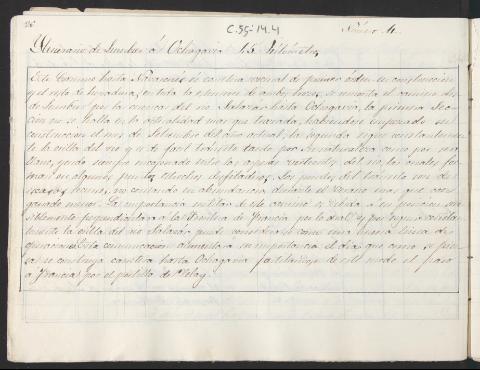 26
C.35-14.4
Número 11.
Itinerario de Lumbier á Ochagavia 45 Kilómetros
Este camino hasta Navascués es carretera vecinal de primer orden en construcción
y el resto de herradura; en toda la extensión de ambos trozos se remonta el camino des-
de Lumbier por la cuenca del río Salazar hasta Ochagavia, la primera Sec-
ción no se halla en la actualidad mas que trazada, habiéndose empezado su
construcción el mes de Setiembre del año actual, la segunda sigue constantemen-
te la orilla del río y es de facil tránsito tanto por su naturaleza como por ser
llano, yendo siempre encajonado entre las vertientes del río, las cuales for-
man en algunos puntos estrechos desfiladeros. Los pueblos del tránsito son de
escasos recursos, no contando en abundancia durante el verano mas que con
ganado menor. La importancia militar de este camino es debida á su dirección
sensiblemente perpendicular á la frontera de Francia por lo cual y por seguir constan-
temente la orilla del río Salazar puede considerarse como una buena línea de
operaciones. Esta comunicación aumentará su importancia el día que como se pien-
sa se construya carretera hasta Ochagavia facilitándose de este modo el paso
á Francia por el portillo de